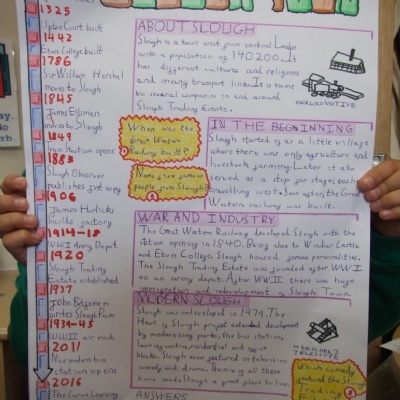 1325
Upton Court built
1442
Eton College built
1786
Sir William Hershal
moves to Slough
1845
James Elliman
moves to Slough
1849
Train Station opens
1883
Slough Observer
publishes first copy
1906
James Horlicks
builds factory
1914-18
WWI Army Depot
1920
Slough Trading
Estate established
1937
John Betjeman
writes Slough Poem
1939-45
WWII air raids
2011
New modern bus
station opens
2016
The Curve
ABOUT SLOUGH
Slough is a town west from central London
with a population of 140200. It
has different cultures and religions
and many transport links. It is home
to several companies in and around
Slough Trading Estate.
When was the
Great Western
Railway built?
1
Name five famous
people from Slough?
2
IN THE BEGINNING
Slough started of as a little village
where there was only agriculture and
livestock farming. Later it also
served as a stop for stagecoaches
travelling west. Soon after, the Great
Western railway was built.
WAR AND INDUSTRY
The Great Western Railway developed Slough with the
station opening in 1840. Being close to Windsor Castle
and Eton College, Slough housed famous personalities.
The Slough Trading Estate was founded after WWI
on an army depot. After WWII there was huge
immigration and redevelopment of Slough Town.
MODERN SLOUGH
Slough was redeveloped in 1979. The
Heart of Slough project extended development
by modernising parks, the bus station,
learning centre, residential and office
blocks. Slough even featured in television
comedy and dramas. These all these
have made Slough a great place to live.
HERSCHEL'S
TELESCOPE
Which comedy
featured the Slough
Trading
3
ANSWERS